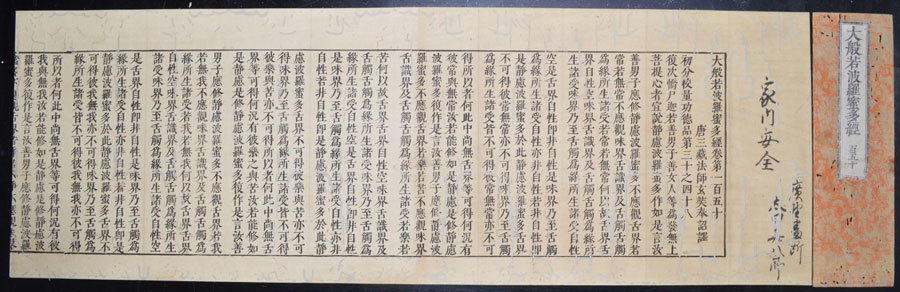 大般若波羅蜜多經 百五十
家内安全
大般若波羅蜜多經卷第一百五十
唐三藏法師玄奘奉 詔譯
初分校量功德品第三十之四十八
復次憍尸迦若善男子善女人等為發無上
菩提心者宣說靜慮波羅蜜多作如是言汝
善男子應修靜慮波羅蜜多不應觀舌界若
常若無常不應觀味界舌識界及舌觸舌觸
為緣所生諸受若常若無常何以故舌界舌
界自性空味界舌識界及舌觸舌觸為緣所
生諸受味界乃至舌觸為緣所生諸受自性
空是舌界自性即非自性是味界乃至舌觸
為緣所生諸受自性亦非自性若非自性即
是靜慮波羅蜜多於此靜慮波羅蜜多舌界
不可得彼常無常亦不可得味界乃至舌觸
為緣所生諸受皆不可得彼常無常亦不可
得所以者何此中尚無舌界等可得何況有
彼常與無常汝若能修如是靜慮是修靜慮
波羅蜜多復作是言汝善男子應修靜慮波
羅蜜多不應觀舌界若樂若苦不應觀味界
舌識界及舌觸舌觸為緣所生諸受若樂若
苦何以故舌界舌界自性空味界舌識界及
舌觸舌觸為緣所生諸受味界乃至舌觸為
緣所生諸受自性空是舌界自性即非自性
是味界乃至舌觸為緣所生諸受自性亦非
自性若非自性即是靜慮波羅蜜多於此靜
慮波羅蜜多舌界不可得彼樂與苦亦不可
得味界乃至舌觸為緣所生諸受皆不可得
彼樂與苦亦不可得所以者何此中尚無舌
界等可得何況有彼樂之與苦汝若能修如
是靜慮是修靜慮波羅蜜多復作是言汝善
男子應修靜慮波羅蜜多不應觀舌界若我
若無我不應觀味界舌識界及舌觸舌觸為
緣所生諸受若我若無我何以故舌界舌界
自性空味界舌識界及舌觸舌觸為緣所生
諸受味界乃至舌觸為緣所生諸受自性空
是舌界自性即非自性是味界乃至舌觸為
緣所生諸受自性亦非自性若非自性即是
靜慮波羅蜜多於此靜慮波羅蜜多舌界不
可得彼我無我亦不可得味界乃至舌觸為
緣所生諸受皆不可得彼我無我亦不可得
所以者何此中尚無舌界等可得何況有彼
我與無我汝若能修如是靜慮是修靜慮波
羅蜜多復作是言汝善男子應修靜慮波羅